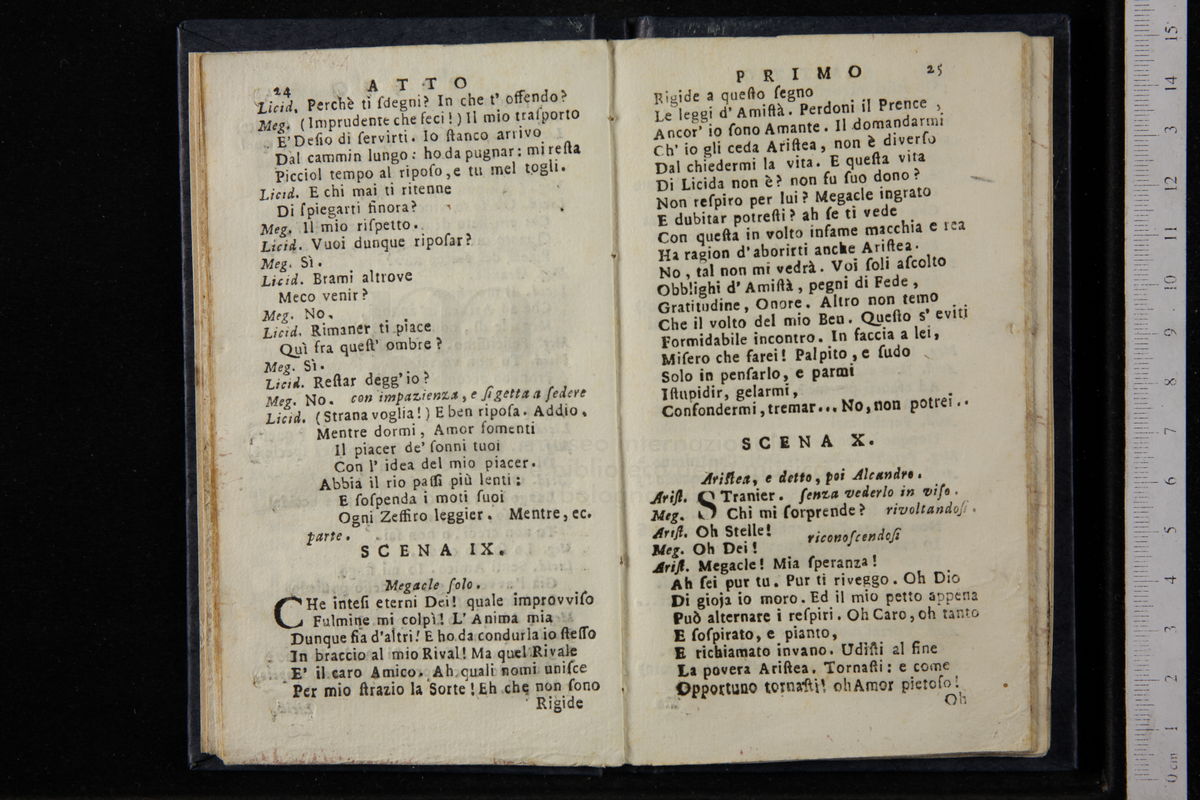 24 ATTO
Licid. Perchè ti ſdegni? In che t' offendo?
Meg. (Imprudente che feci!) Il mio traſporto
E' Deſio di ſervirti. Io ſtanco arrivo
Dal cammin lungo: ho da pugnar: mi reſta
Picciol tempo al ripoſo, e tu mel togli.
Licid. E chi mai ti ritenne
Di ſpiegarti finora?
Meg. Il mio riſpetto.
Licid. Vuoi dunque ripoſar?
Meg. Sì.
Licid. Brami altrove
Meco venir?
Meg. No.
Licid. Rimaner ti piace
Quì fra queſt' ombre?
Meg. Sì.
Licid. Reſtar degg'io?
Meg. No. con impazienza, e ſi getta a ſedere
Licid. (Strana voglia!) E ben ripoſa. Addio.
Mentre dormi, Amor fomenti
Il piacer de' ſonni tuoi
Con l' idea del mio piacer.
Abbia il rio paſſi più lenti:
E ſoſpenda i moti ſuoi
Ogni Zeffiro leggier. Mentre, ec.
parte.
SCENA IX.
Megacle ſolo.
CHe inteſi eterni Dei! quale improvviſo
Fulmine mi colpì! L' Anima mia
Dunque ſia d'altri! E ho da condurla io ſteſſo
In braccio al mio Rival! Ma quel Rivale
E' il caro Amico. Ah quali nomi uniſce
Per mio ſtrazio la Sorte! Eh che non ſono
Rigide
PRIMO 25
Rigide a queſto ſegno
Le leggi d' Amiſtà. Perdoni il Prence,
Ancor' io ſono Amante. Il domandarmi
Ch' io gli ceda Ariſtea, non è diverſo
Dal chiedermi la vita. E queſta vita
Di Licida non è? non fu ſuo dono?
Non reſpiro per lui? Megacle ingrato
E dubitar potreſti? ah ſe ti vede
Con queſta in volto infame macchia e rea
Ha ragion d'aborirti anche Ariſtea.
No, tal non mi vedrà. Voi ſoli aſcolto
Obblighi d' Amiſtà, pegni di Fede,
Gratitudine, Onore. Altro non temo
Che il volto del mio Ben. Queſto s' eviti
Formidabile incontro. In faccia a lei,
Miſero che farei! Palpito, e ſudo
Solo in penſarlo, e parmi
Iſtupidir, gelarmi,
Confondermi, tremar... No, non potrei..
SCENA X.
Ariſtea, e detto, poi Alcandro.
Ariſt. STranier. ſenza vederlo in viſo.
Meg. Chi mi ſorprende? rivoltandoſi.
Ariſt. Oh Stelle!
riconoſcendoſi
Meg. Oh Dei!
Ariſt. Megacle! Mia ſperanza!
Ah ſei pur tu. Pur ti riveggo. Oh Dio
Di gioja io moro. Ed il mio petto appena
Può alternare i reſpiri. Oh Caro, oh tanto
E ſoſpirato, e pianto,
E richiamato invano. Udiſti al fine
La povera Ariſtea. Tornaſti: e come
Opportuno tornaſti! oh Amor pietoſo!
Oh